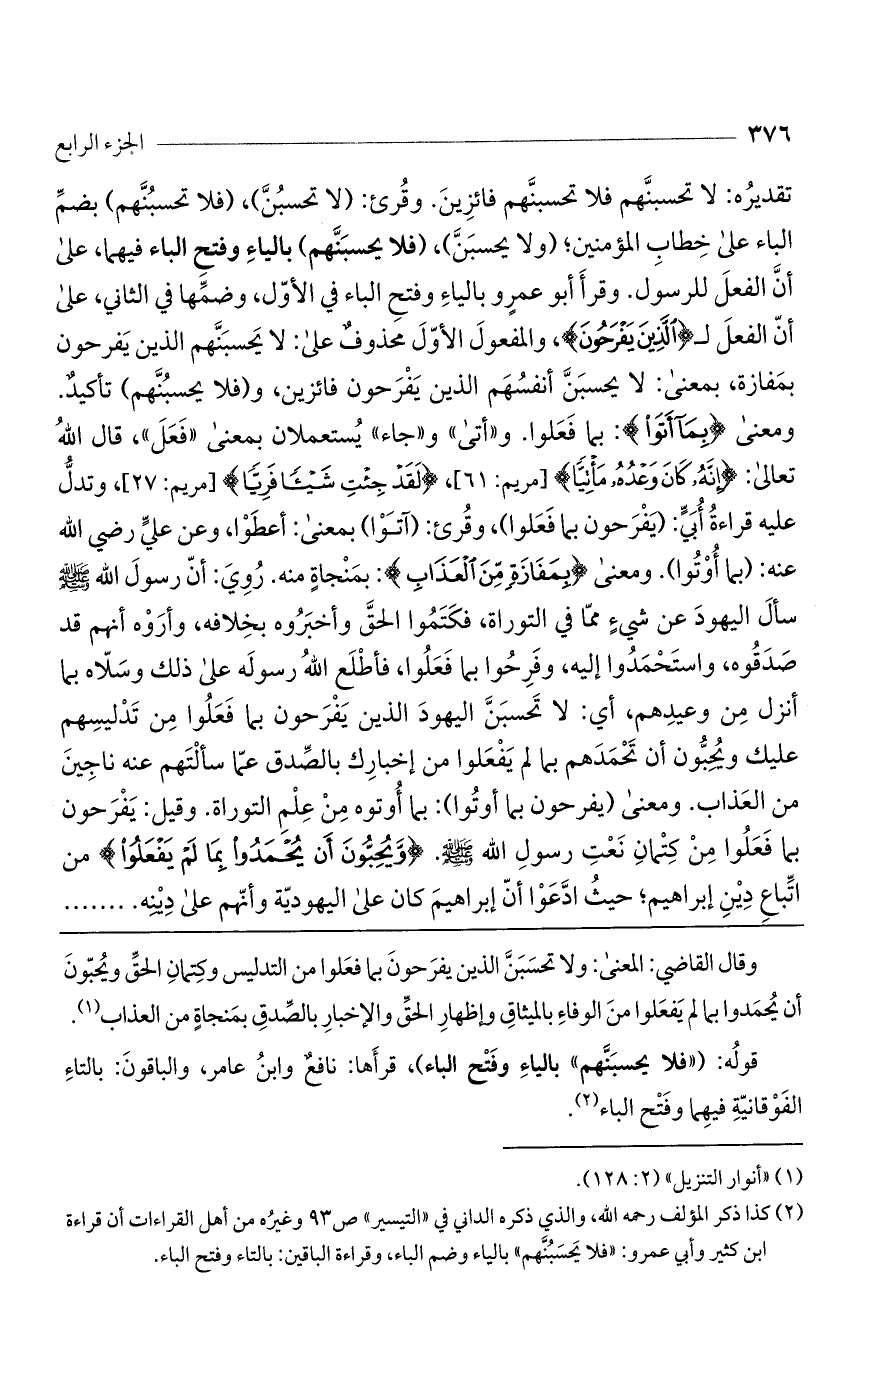 ٣٧٦ الجزء الرابع
تقديرُه: لا تحسبنَّهم فلا تحسبنَّهم فائزِينَ. وقُرئ: (لا تحسبُنَّ)، (فلا تحسبُنَّهم) بضمِّ
الباء علىٰ خِطابِ المؤمنين؛ (ولا يحسبَنَّ)، (فلا يحسبَنَّهم) بالياءِ وفتحِ الباء فيهما، علىٰ
أنَّ الفعلَ للرسول. وقرأَ أبو عمرٍو بالياءِ وفتحِ الباء في الأوّل، وضمِّها في الثاني، علىٰ
أنّ الفعلَ لـ﴿ٱلَّذِينَ يَفۡرَحُونَ﴾، والمفعولَ الأوّلَ محذوفٌ علىٰ: لا يَحسبَنَّهم الذين يَفرحون
بمَفازة، بمعنىٰ: لا يحسبَنَّ أنفسُهَم الذين يَفْرَحون فائزين، و(فلا يحسبُنَّهم) تأكيدٌ.
ومعنىٰ ﴿بِمَآ أَتَوا۟﴾: بما فَعَلوا. و«أتىٰ» و«جاء» يُستعملان بمعنىٰ «فَعَلَ»، قال اللهُ
تعالىٰ: ﴿إِنَّهُۥ كَانَ وَعۡدُهُۥ مَأۡتِيًّا﴾ [مريم: ٦١]، ﴿لَقَدۡ جِئۡتِ شَيۡـًٔا فَرِيًّا﴾ [مريم: ٢٧]، وتدلُّ
عليه قراءةُ أُبَيٍّ: (يَفْرَحون بما فَعَلوا)، وقُرئ: (آتَـوْا) بمعنىٰ: أعطَوْا، وعن عليٍّ رضي الله
عنه: (بما أُوْتُوا). ومعنىٰ ﴿بِمَفَازَةٍ مِّنَ ٱلۡعَذَابِ﴾: بمَنْجاةٍ منه. رُوِيَ: أنّ رسولَ الله ﷺ
سألَ اليهودَ عن شيءٍ ممّا في التوراة، فكَتَمُوا الحقَّ وأخبَرُوه بخِلافه، وأرَوْه أنهم قد
صَدَقُوه، واستَحْمَدُوا إليه، وفَرِحُوا بما فَعَلُوا، فأطْلَع اللهُ رسولَه علىٰ ذلك وسَلّاه بما
أنزل مِن وعيدِهم، أي: لا تَحسبَنَّ اليهودَ الذين يَفْرَحون بما فَعَلُوا مِن تَدْليسِهم
عليك ويُحِبُّون أن تَحْمَدَهم بما لم يَفْعَلوا من إخبارِك بالصِّدق عمّا سألْتَهم عنه ناجِينَ
من العَذاب. ومعنىٰ (يفرحون بما أوتُوا): بما أُوتوه مِنْ عِلْمِ التوراة. وقيل: يَفْرَحون
بما فَعَلُوا مِنْ كِتْمانِ نَعْتِ رسولِ الله ﷺ. ﴿وَّيُحِبُّونَ أَن يُحۡمَدُوا۟ بِمَا لَمۡ يَفۡعَلُوا۟﴾ من
اتِّباعِ دِيْنِ إبراهيم؛ حيثُ ادَّعَوْا أنّ إبراهيمَ كان علىٰ اليهوديّة وأنّهم علىٰ دِيْنِه. .......
وقال القاضي: المعنىٰ: ولا تحسَبَنَّ الذين يفرَحونَ بما فعَلوا من التدليس وكِتمانِ الحقِّ ويُحبّونَ
أن يُحمَدوا بما لم يَفعَلوا منَ الوفاءِ بالميثاقِ وإظهارِ الحقِّ والإخبارِ بالصِّدقِ بمَنجاةٍ من العذاب(١).
قولُه: («فلا يحسبَنَّهم» بالياءِ وفَتْح الباء)، قرأَها: نافعٌ وابنُ عامر، والباقونَ: بالتاءِ
الفَوْقانيّةِ فيهِما وفَتْح الباء(٢).
(١) «أنوار التنزيل» (٢: ١٢٨).
(٢) كذا ذكر المؤلف رحمه الله، والذي ذكره الداني في «التيسير» ص٩٣ وغيرُه من أهل القراءات أن قراءة
ابن كثير وأبي عمرو: «فلا يَحسَبُنَّهم» بالياء وضم الباء، وقراءة الباقين: بالتاء وفتح الباء.